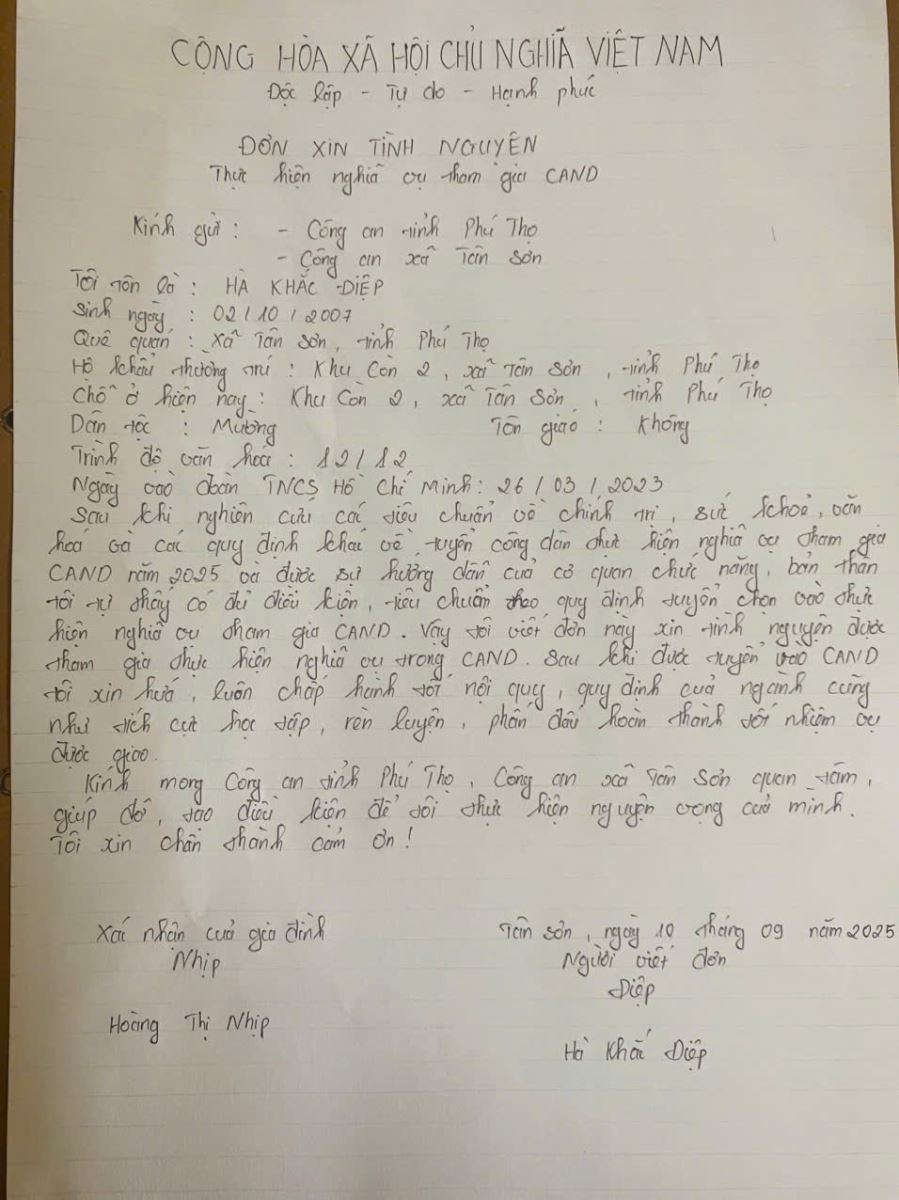 CỘNG HÒA XÃ HỘI CHỦ NGHĨA VIỆT NAM
Độc lập - Tự do - Hạnh phúc
ĐƠN XIN TÌNH NGUYỆN
Thực hiện nghĩa vụ tham gia CAND
Kính gửi : - Công an tỉnh Phú Thọ
- Công an xã Tân Sơn
Tôi tên là : HÀ KHẮC DIỆP
Sinh ngày : 02/10/2007
Quê quán : Xã Tân Sơn, tỉnh Phú Thọ
Hộ khẩu thường trú : Khu Còn 2, xã Tân Sơn, tỉnh Phú Thọ
Chỗ ở hiện nay : Khu Còn 2, xã Tân Sơn, tỉnh Phú Thọ
Dân tộc : Mường Tôn giáo : Không
Trình độ văn hoá : 12/12
Ngày vào đoàn TNCS Hồ Chí Minh : 26/03/2023
Sau khi nghiên cứu các tiêu chuẩn về chính trị, sức khoẻ, văn
hoá và các quy định khác về tuyển công dân thực hiện nghĩa vụ tham gia
CAND năm 2025 và được sự hướng dẫn của cơ quan chức năng, bản thân
tôi tự thấy có đủ điều kiện, tiêu chuẩn theo quy định tuyển chọn vào thực
hiện nghĩa vụ tham gia CAND. Vậy tôi viết đơn này xin tình nguyện được
tham gia thực hiện nghĩa vụ trong CAND. Sau khi được tuyển vào CAND
tôi xin hứa, luôn chấp hành tốt nội quy, quy định của ngành cũng
như tích cực học tập, rèn luyện, phấn đấu hoàn thành tốt nhiệm vụ
được giao.
Kính mong Công an tỉnh Phú Thọ, Công an xã Tân Sơn quan tâm,
giúp đỡ, tạo điều kiện để tôi thực hiện nguyện vọng của mình.
Tôi xin chân thành cảm ơn!
Xác nhận của gia đình
Nhịp
Hoàng Thị Nhịp
Tân Sơn, ngày 10 tháng 09 năm 2025
Người viết đơn
Diệp
Hà Khắc Diệp